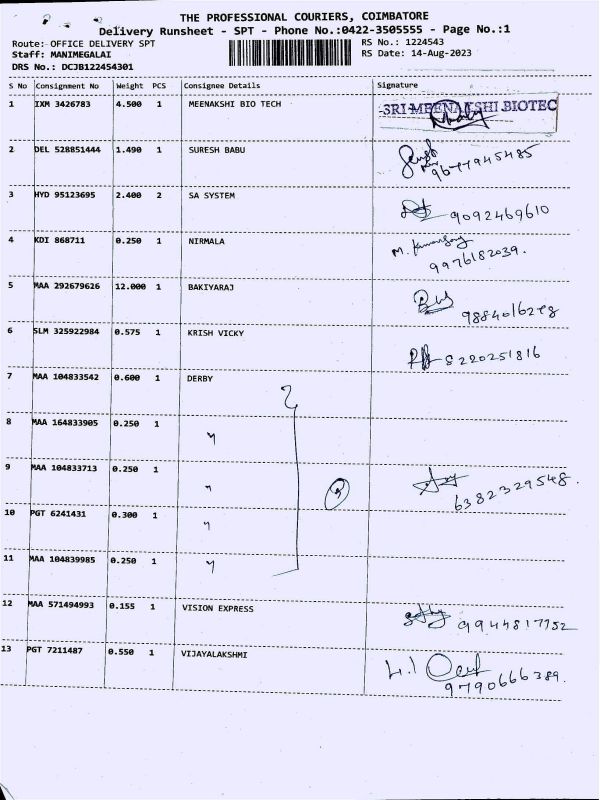 THE PROFESSIONAL COURIERS, COIMBATORE
Delivery Runsheet - SPT - Phone No.:0422-3505555 - Page No.:1
Route: OFFICE DELIVERY SPT RS No.: 1224543
Staff: MANIMEGALAI RS Date: 14-Aug-2023
DRS No.: DCJB122454301
S No Consignment No Weight PCS Consignee Details Signature
1 IXM 3426783 4.500 1 MEENAKSHI BIO TECH SRI MEENAKSHI BIOTEC
2 DEL 528851444 1.490 1 SURESH BABU
9677945485
3 HYD 95123695 2.400 2 SA SYSTEM
9092469610
4 KDI 868711 0.250 1 NIRMALA M.
9976182039.
5 MAA 292679626 12.000 1 BAKIYARAJ
9884016278
6 SLM 325922984 0.575 1 KRISH VICKY
8220251816
7 MAA 104833542 0.600 1 DERBY
8 MAA 164833905 0.250 1 "
9 MAA 104833713 0.250 1 "
6382329548.
10 PGT 6241431 0.300 1 "
11 MAA 104839985 0.250 1 "
12 MAA 571494993 0.155 1 VISION EXPRESS
9944817752
13 PGT 7211487 0.550 1 VIJAYALAKSHMI
9790666389.